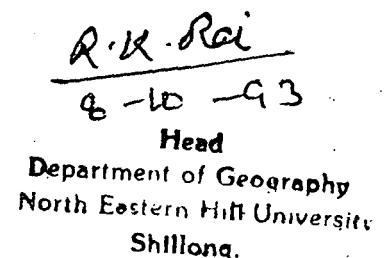 R.K. Rai
8-10-93
Head
Department of Geography
North Eastern Hill University
Shillong.